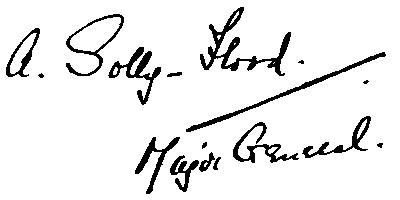 A. Solly-Flood.
Major General.